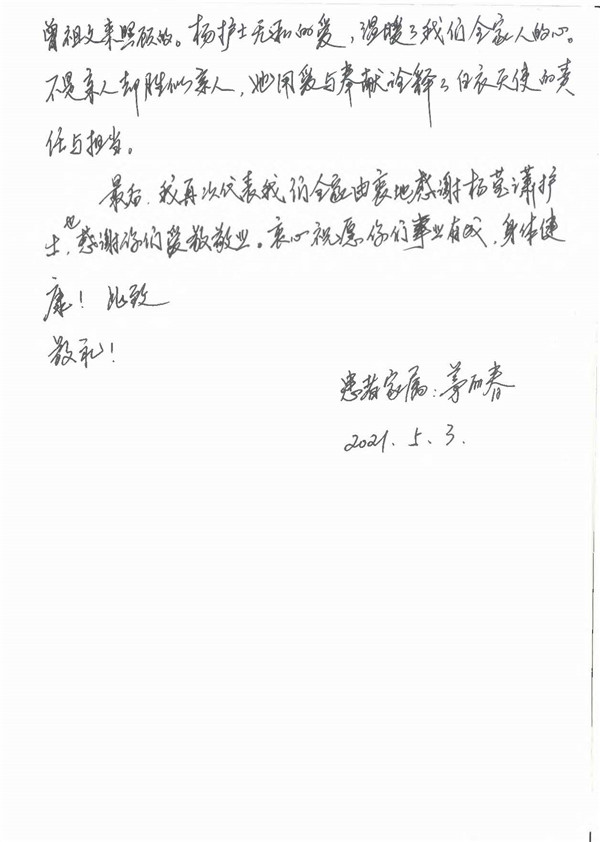 曾祖父来照顾的。杨护士无私的爱，温暖了我们全家人的心。
不是亲人却胜似亲人，她用爱与奉献诠释了白衣天使的责
任与担当。
最后，我再次代表我们全家由衷地感谢杨莹潇护
士，也感谢你们爱岗敬业。衷心祝愿你们事业有成，身体健
康！此致
敬礼！
患者家属：茅丽春
2021.5.3.